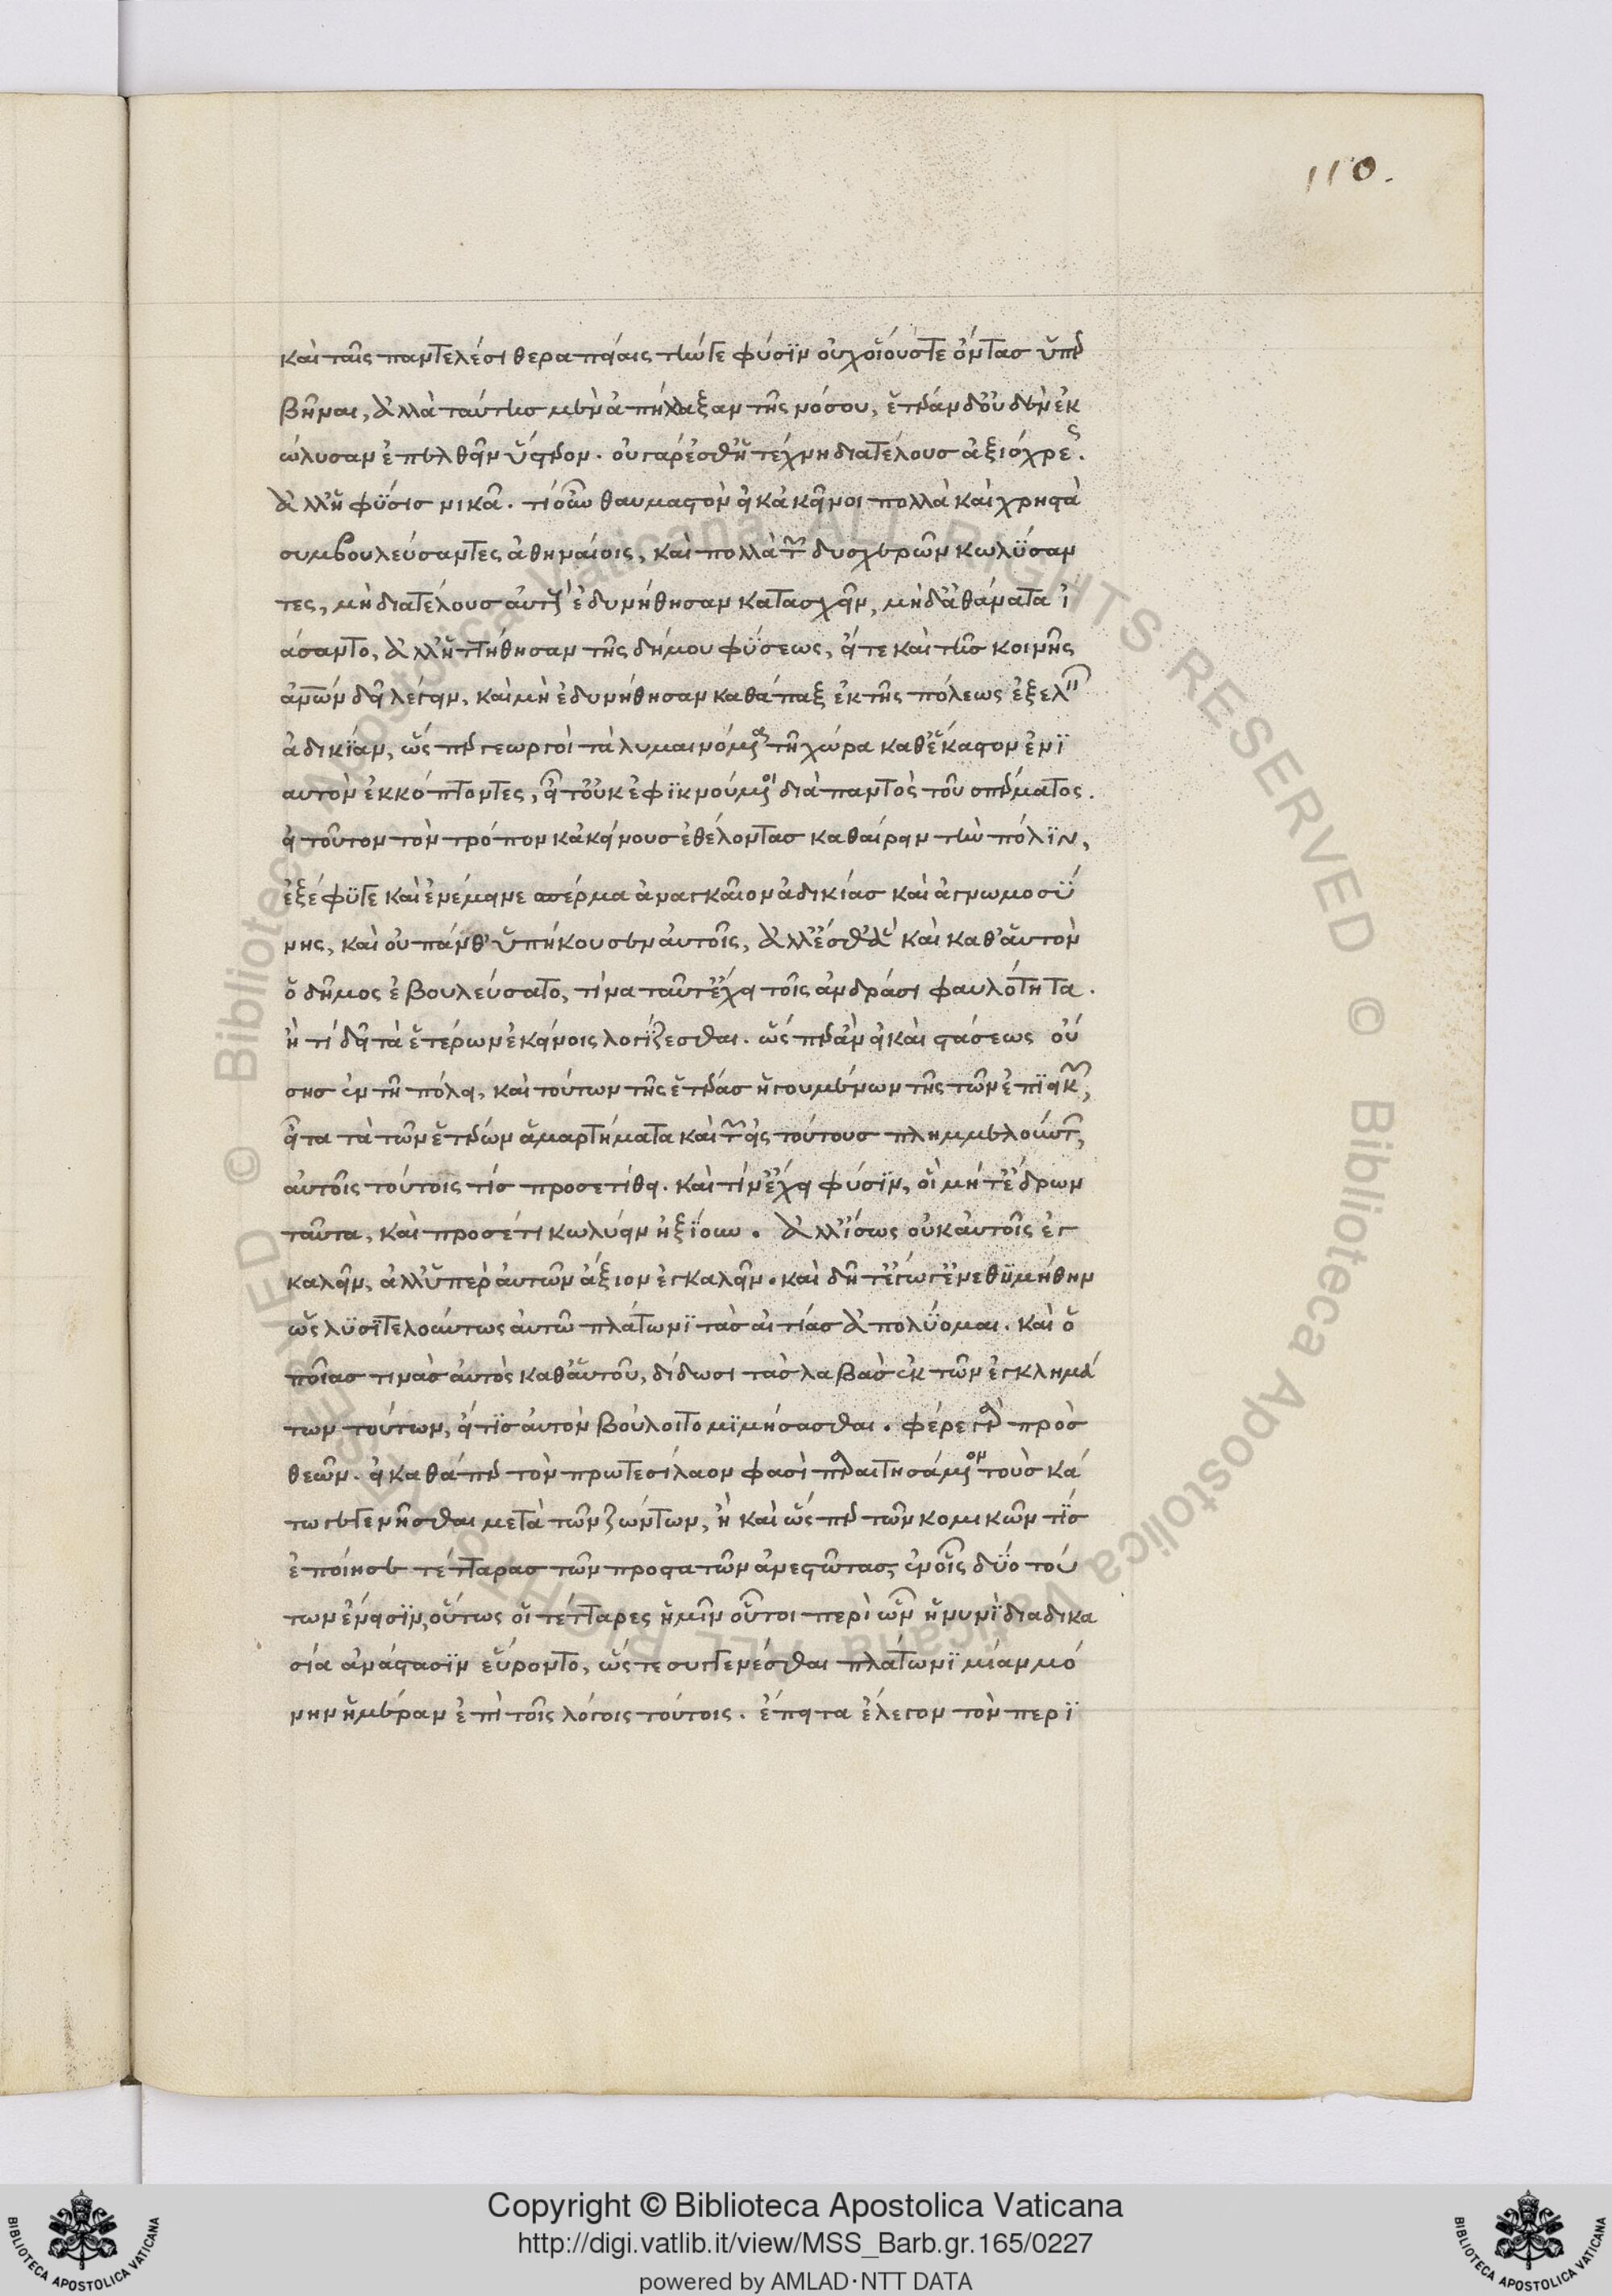 110.
καὶ ταῖς παντελέσι θεραπείαις τήν γε φύσιν οὐχ οἷοί γε ὄντας ὑπερ
βῆναι, ἀλλὰ ταύτης μὲν ἀπήλλαξαν τῆς νόσου, ἑτέραν δ' οὐδὲν ἐκ
ώλυσαν ἐπελθεῖν ὕστερον. οὐ γάρ ἐσθ' ἡ τέχνη διὰ τέλους ἀξιόχρεως.
ἀλλ' ἡ φύσις νικᾷ. τί οὖν θαυμαστὸν εἰ κἀκεῖνοι πολλὰ καὶ χρηστὰ
συμβουλεύσαντες ἀθηναίοις, καὶ πολλὰ τῶν δυσχερῶν κωλύσαν
τες, μὴ διὰ τέλους αὐτοὺς ἐδυνήθησαν κατασχεῖν, μὴ δ' ἀθάνατα ἰ
άσαντο, ἀλλ' ἡττήθησαν τῆς δήμου φύσεως, εἴτε καὶ τῆς κοινῆς
ἀνων δεῖ λέγειν, καὶ μὴ ἐδυνήθησαν καθάπαξ ἐκ τῆς πόλεως ἐξελεῖν
ἀδικίαν, ὥσπερ γεωργοὶ τὰ λυμαινόμενα τῇ χώρα καθ' ἕκαστον ἐνι
αυτὸν ἐκκόπτοντες, εἶτ' οὐκ ἐφικνούμενοι διὰ παντὸς τοῦ σπέρματος.
εἰ τοῦτον τὸν τρόπον κἀκείνους ἐθέλοντας καθαίρειν τὴν πόλιν,
ἐξέφυγε καὶ ἐνέμεινε σπέρμα ἀναγκαῖον ἀδικίας καὶ ἀγνωμοσύ
νης, καὶ οὐ πάνθ' ὑπήκουσεν αὐτοῖς, ἀλλ' ἔσθ' ἃ καὶ καθ' αὑτὸν
ὁ δῆμος ἐβουλεύσατο, τίνα ταῦτ' ἔχει τοῖς ἀνδράσι φαυλότητα.
ἢ τί δεῖ τὰ ἑτέρων ἐκείνοις λογίζεσθαι. ὥσπερ ἂν εἰ καὶ στάσεως οὔ
σης ἐν τῇ πόλει, καὶ τούτων τῆς ἑτέρας ἡγουμένων τῆς τῶν ἐπιεικῶν,
εἶτα τὰ τῶν ἑτέρων ἁμαρτήματα καὶ τῶν εἰς τούτους πλημμελούντων,
αὐτοῖς τούτοις τίς προσετίθει. καὶ τίν' ἔχει φύσιν, οἳ μήτ' ἔδρων
ταῦτα, καὶ προσέτι κωλύειν ἠξίουν. ἀλλ' ἴσως οὐκ αὐτοῖς ἐγ
καλεῖν, ἀλλ' ὑπὲρ αὐτῶν ἄξιον ἐγκαλεῖν. καὶ δῆτ' ἔγωγ' ἐνεθυμήθην
ὡς λυσιτελούντως αὐτῷ πλάτωνι τὰς αἰτίας ἀπολύομαι. καὶ ὁ
ποίας τινὰς αὐτὸς καθ' αὑτοῦ, δίδωσι τὰς λαβὰς ἐκ τῶν ἐγκλημά
των τούτων, εἴ τις αὐτὸν βούλοιτο μιμήσασθαι. φέρε γὰρ πρὸς
θεῶν. εἰ καθάπερ τὸν πρωτεσίλαον φασὶ παραιτησάμενον τοὺς κά
τω γεγενῆσθαι μετὰ τῶν ζώντων, ἢ καὶ ὥσπερ τῶν κομικῶν τίς
ἐποίησε τέτταρας τῶν προστατῶν ἀνεστῶτας, ἐν οἷς δύο τού
των ἔνεισιν, οὕτως οἱ τέτταρες ἡμῖν οὗτοι περὶ ὧν ἡ νυνὶ διαδικα
σία ἀνάστασιν εὕροντο, ὥστε συγγενέσθαι πλάτωνι μίαν μό
νην ἡμέραν ἐπὶ τοῖς λόγοις τούτοις. ἔπειτα ἔλεγον τὸν περὶ
Copyright © Biblioteca Apostolica Vaticana
http://digi.vatlib.it/view/MSS_Barb.gr.165/0227
powered by AMLAD·NTT DATA